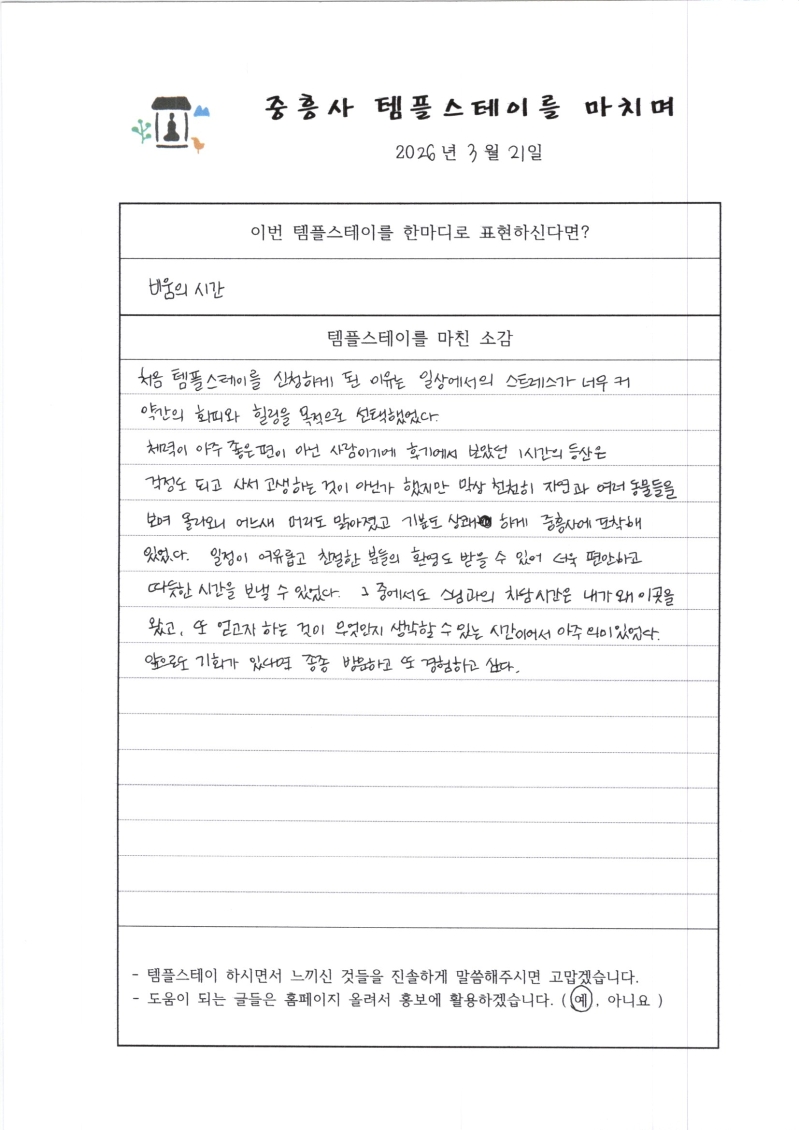 중흥사 템플스테이를 마치며
2026년 3월 21일
이번 템플스테이를 한마디로 표현하신다면?
비움의 시간
템플스테이를 마친 소감
처음 템플스테이를 신청하게 된 이유는 일상에서의 스트레스가 너무 커
약간의 회피와 힐링을 목적으로 선택했었다.
체력이 아주 좋은편이 아닌 사람이기에 후기에서 보았던 1시간의 등산은
걱정도 되고 사서 고생하는 것이 아닌가 했지만 막상 천천히 자연과 여러 동물들을
보며 올라오니 어느새 머리도 맑아졌고 기분도 상쾌 하게 중흥사에 도착해
있었다. 일정이 여유롭고 친절한 분들의 환영도 받을 수 있어 너무 편안하고
따듯한 시간을 보낼 수 있었다. 그 중에서도 스님과의 차담시간은 내가 왜 이곳을
왔고, 또 얻고자 하는 것이 무엇인지 생각할 수 있는 시간이어서 아주 의미있었다.
앞으로도 기회가 있다면 종종 방문하고 또 경험하고 싶다.
- 템플스테이 하시면서 느끼신 것들을 진솔하게 말씀해주시면 고맙겠습니다.
- 도움이 되는 글들은 홈페이지 올려서 홍보에 활용하겠습니다. ( 예 , 아니요 )